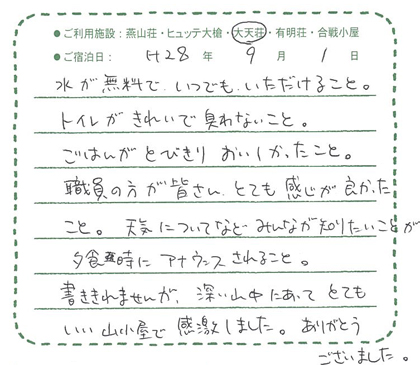 ●ご利用施設：燕山荘・ヒュッテ大槍・大天荘・有明荘・合戦小屋
●ご宿泊日： H28 年 9 月 1 日
水が無料で、いつでも、いただけること。
トイレがきれいで臭わないこと。
ごはんがとびきりおいしかったこと。
職員の方が皆さん、とても感じが良かった
こと。天気についてなどみんなが知りたいことが
夕食時にアナウンスされること。
書ききれませんが、深い山中にあって とても
いい山小屋で感激しました。ありがとう
ございました。